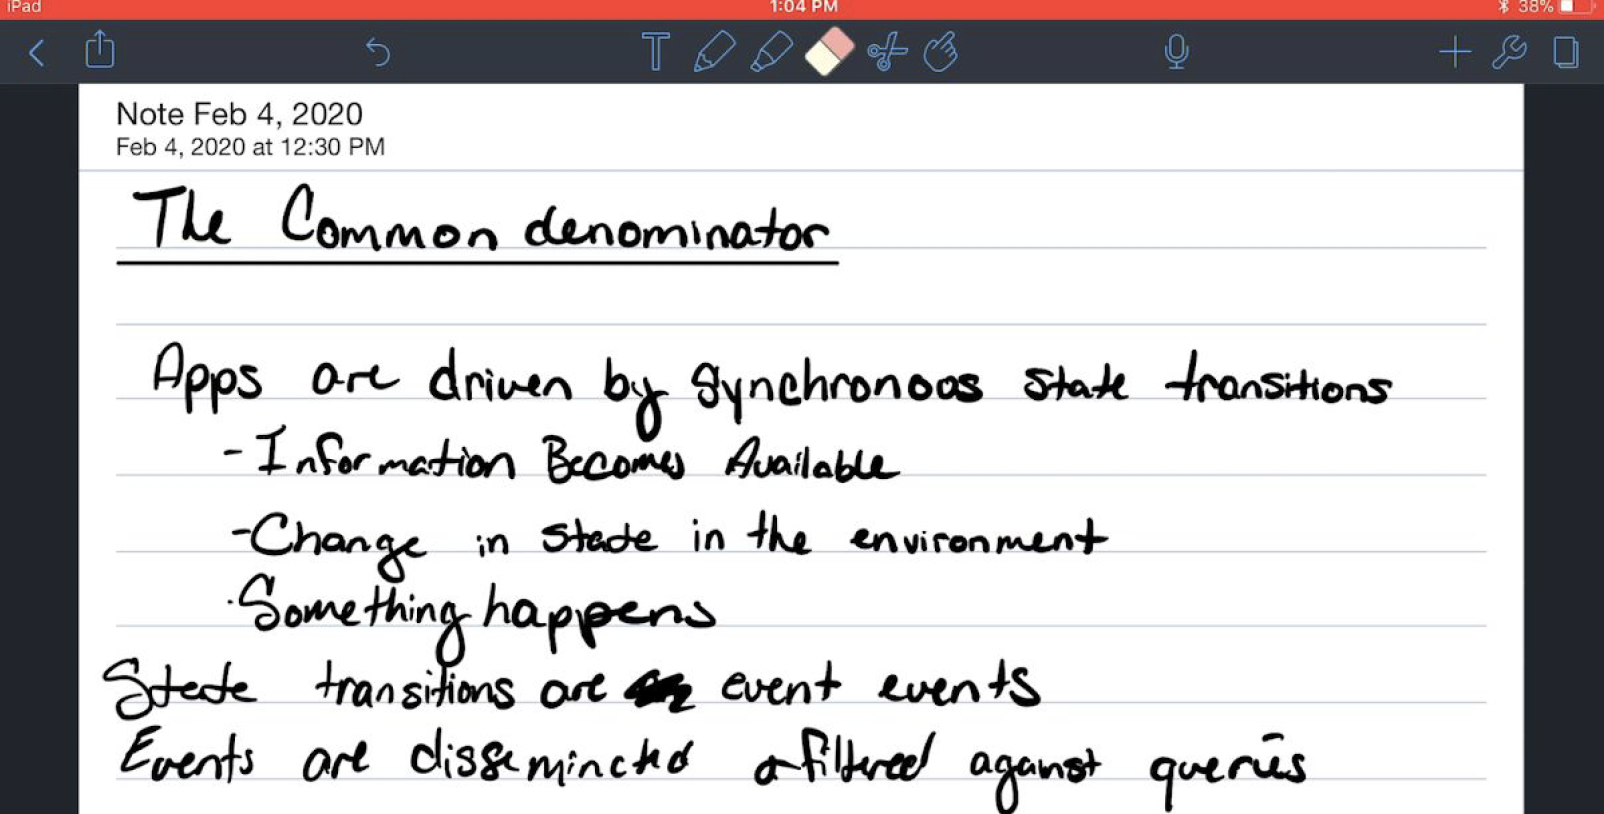 iPad 1:04 PM 38%
T
Note Feb 4, 2020
Feb 4, 2020 at 12:30 PM
The Common denominator
Apps are driven by Synchronoos state transitions
- Information Becomes Available
- Change in state in the environment
· Something happens
State transitions are event events
Events are disseminated & filtered against queries